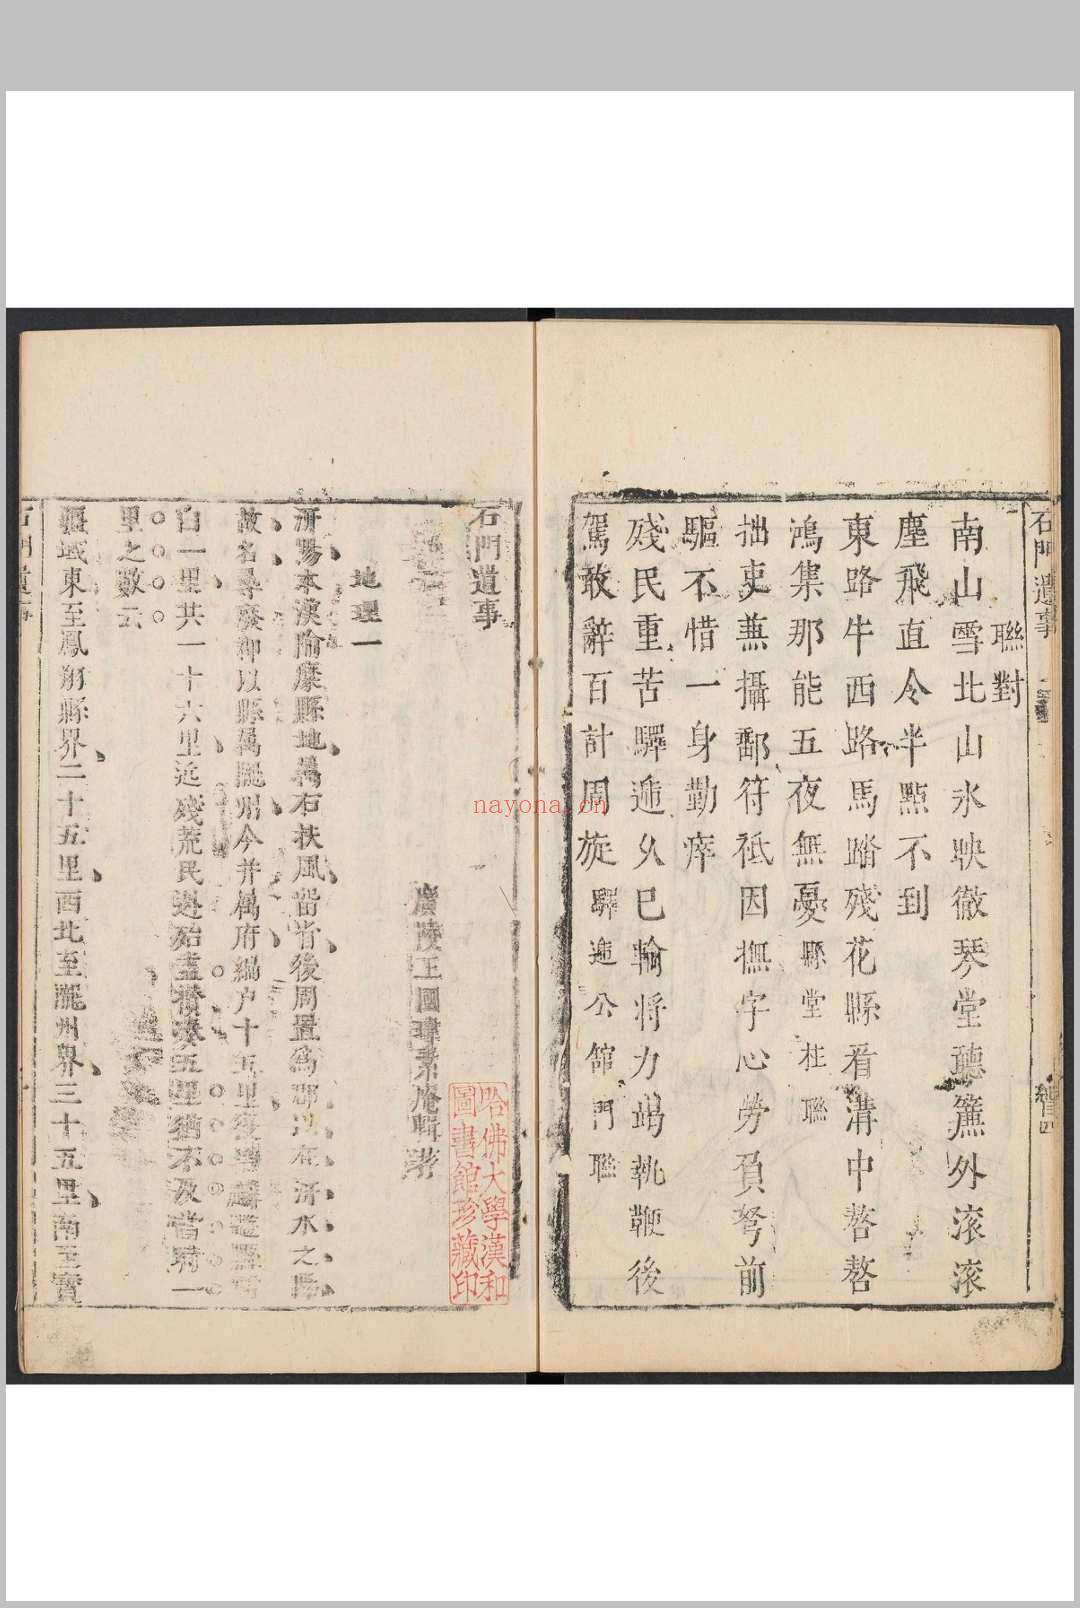 石門遺事
聯對
南山雪北山氷映徹琴堂聽簾外滚滚
塵飛直令半㸃不到
東路牛西路馬踏殘花縣看溝中嗸嗸
鴻集那能五夜無憂縣堂柱聯
拙吏兼攝鄠符祗因撫字心勞負弩前
驅不惜一身勤瘁
殘民重苦驛遞久已輸將力竭執鞭後
駕敢辭百計周旋驛遞公館門聯
石門遺事
廣陵王國瑋素菴輯著
地理一
汧陽本漢隃麋縣地屬右扶風晉省後周置爲郡以在汧水之陽
故名尋廢郡以縣屬隴州今并屬府編户十五里
白一里共一十六里近殘荒民逃殆盡攢湊五里猶不及當時一
里之數云
疆域東至鳳翔縣界二十五里西北至隴州界三十五里南至寳
石門遺事
哈佛大學漢和
圖書館珍藏印
nayona.cn